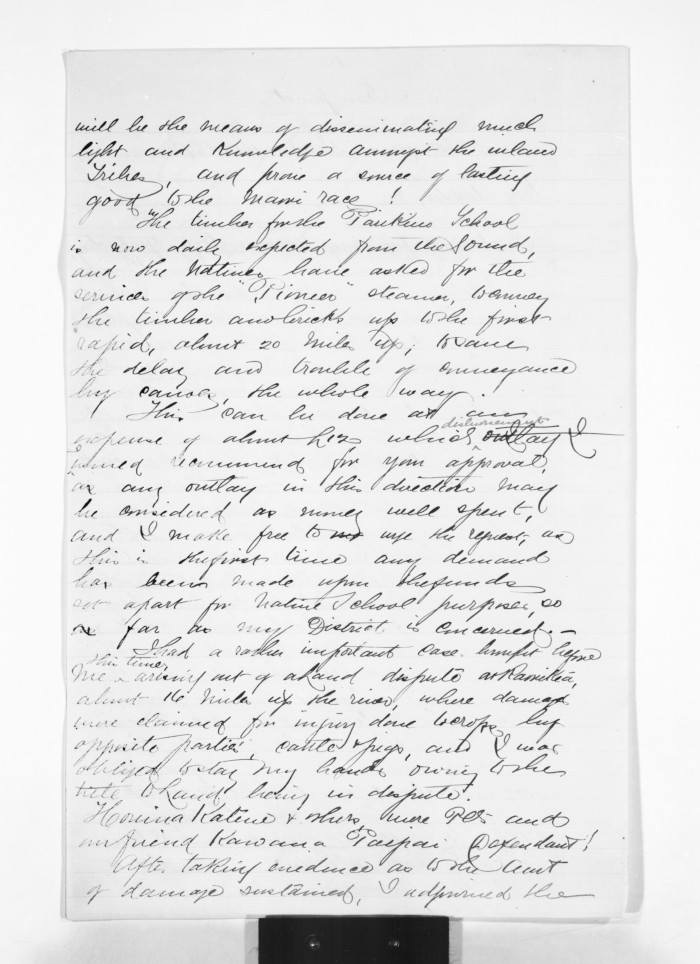 will be the means of disseminating much
light and Knowledge amongst the inland
Tribes, and prove a source of lasting
good to the Maori race!
The timber for the School
is now daily expected from the Sound,
and the Natives have asked for the
services of the "Pioneer" steamer, to convey
the timber and bricks up to the first
rapid, about 20 miles up; to save
the delay and trouble of conveyance
by canoes, the whole way.
This can be done at an
disbursement
expense of about £12 which outlay I
would recommend for your approval,
as any outlay in this direction may
be considered as money well spent,
and I make free to urge the request, as
this is the first time any demand
has been made upon the funds
set apart for Native School purposes, so
far as my District is concerned. —
I had a rather important case brought before
this time,
me arising out of a land dispute at
about 16 miles up the river, where damages
were claimed for injury done to crops by
opposite parties', cattle & pigs, and I was
obliged to stay my hands owing to the
title to land being in dispute.
Katene & others were Plts and
our friend Kawana Paipai Defendant!
After taking evidence as to the Amt
of damage sustained, I adjourned the